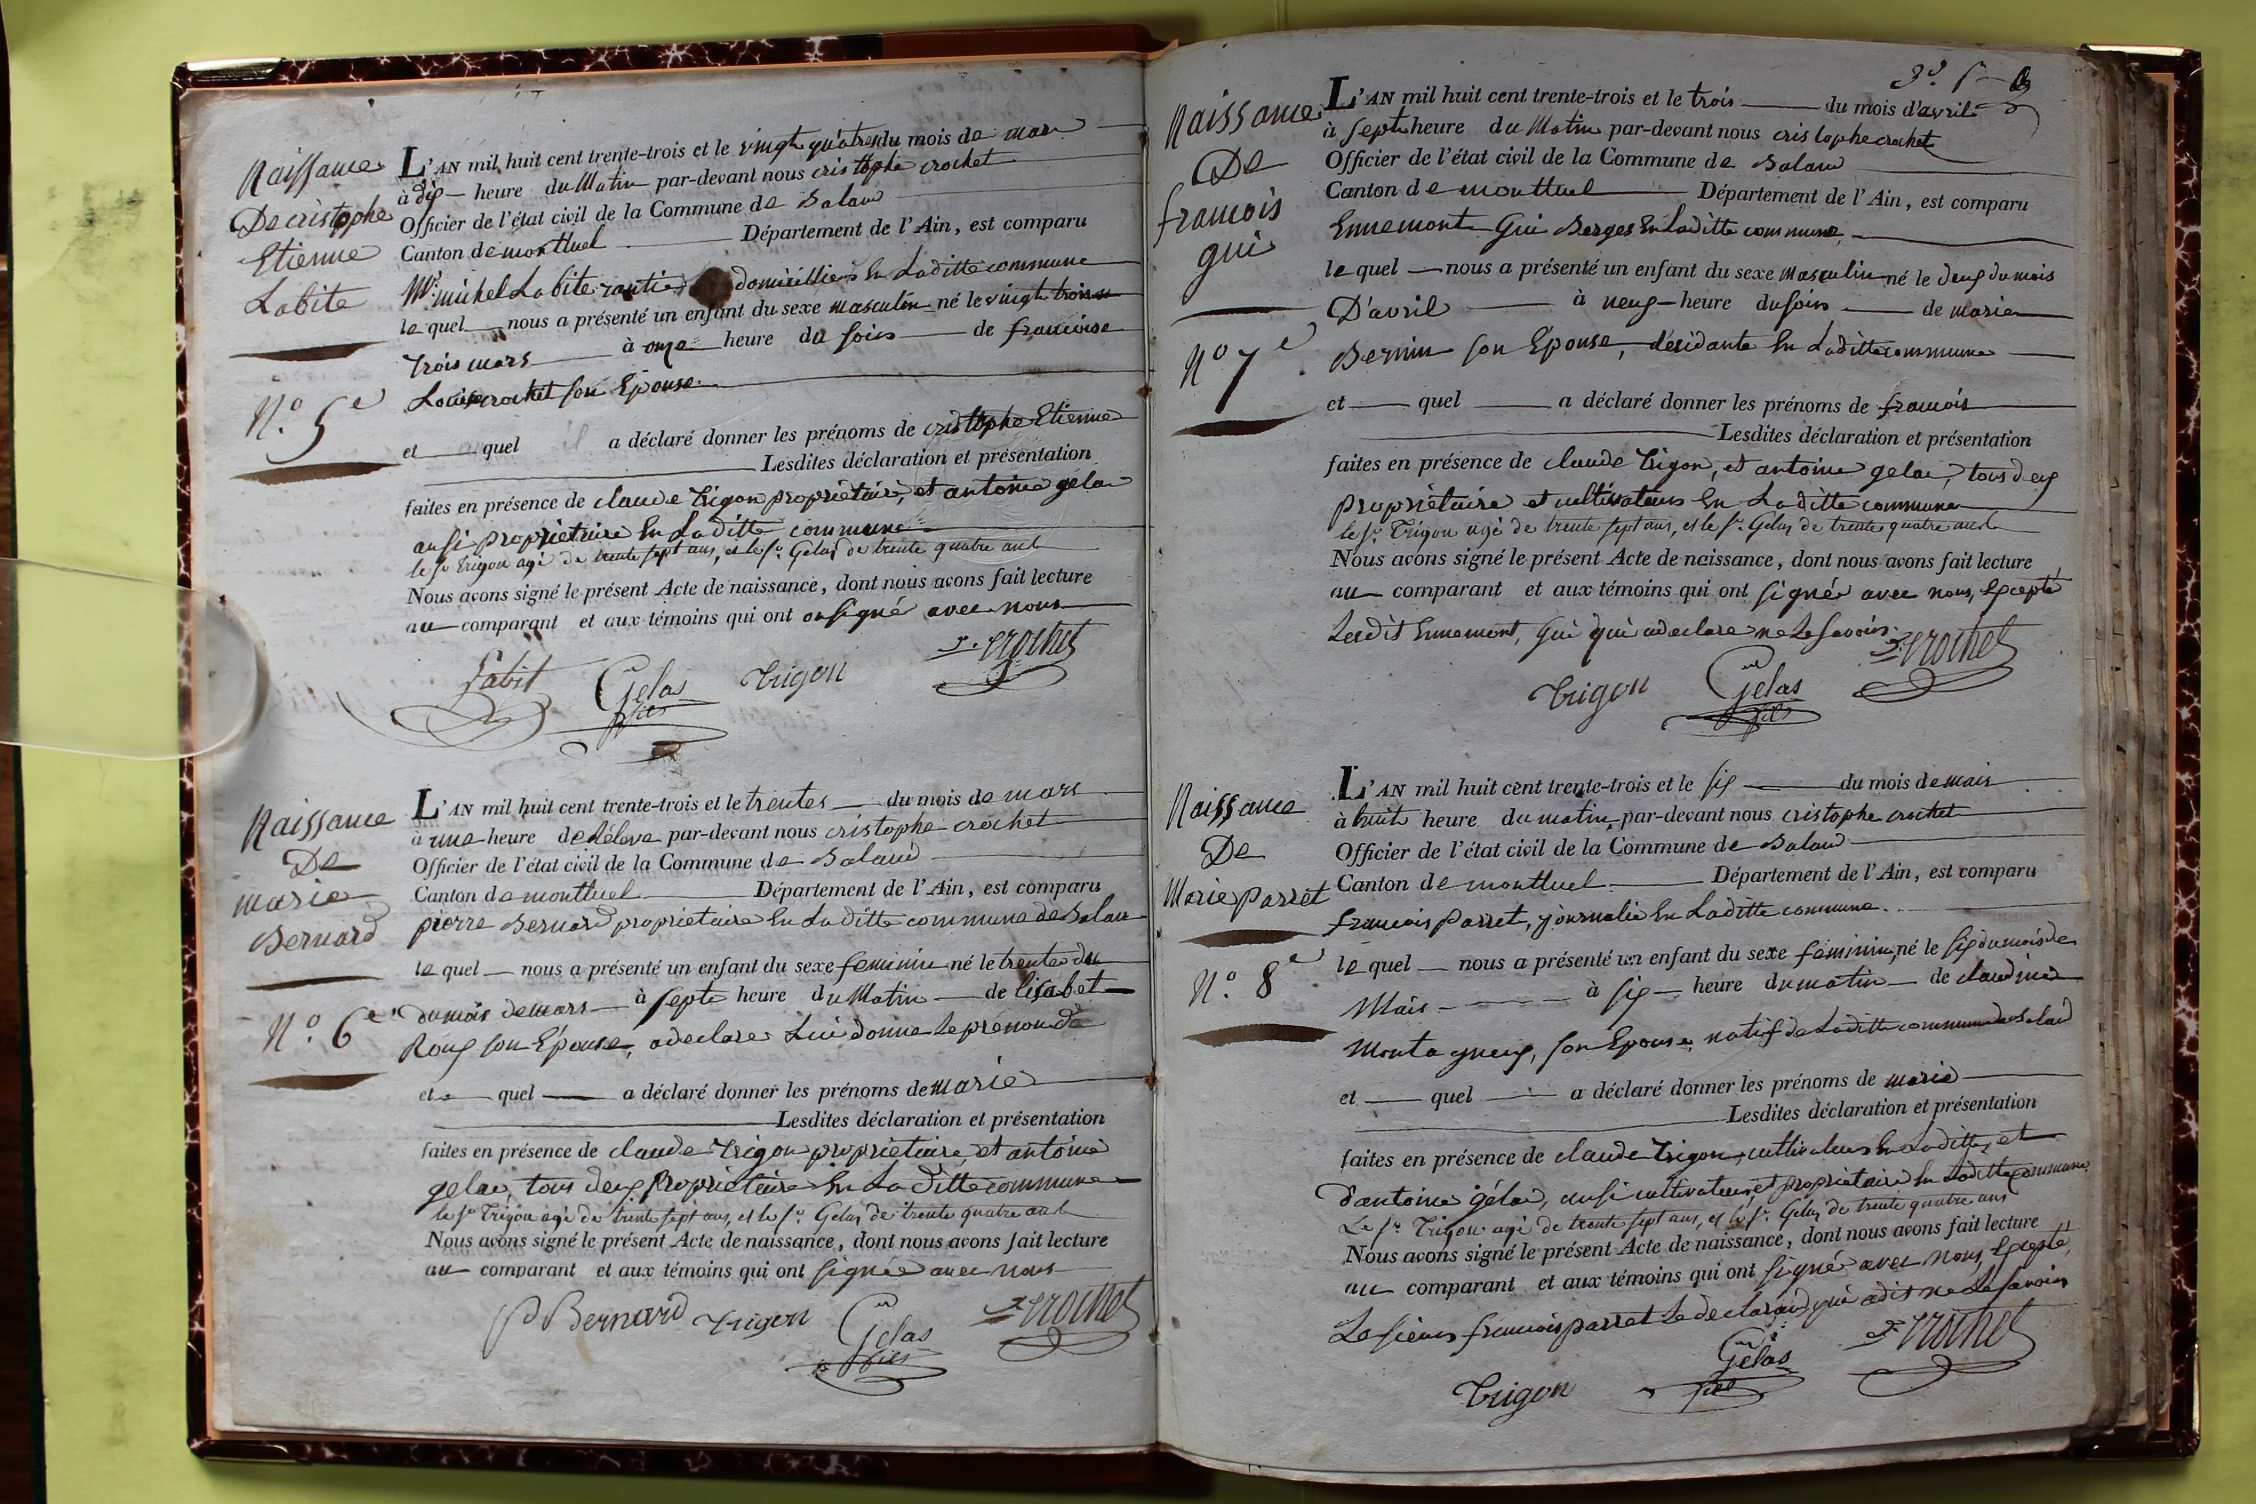 Naissance
De cristophe
Etienne
Labite
N.o 5e
L'AN mil huit cent trente-trois et le vingt quatre du mois de mars
à dix heure du Matin par-devant nous cristophe crochet
Officier de l'état civil de la Commune de Balan
Canton de montluel Département de l'Ain, est comparu
Mr. michel Labite rantier domicillier En Laditte commune
le quel nous a présenté un enfant du sexe masculin né le vingt trois
trois mars à onze heure du soir de francoise
Louise crochet son Epouse
et quel il a déclaré donner les prénoms de cristophe Etienne
Lesdites déclaration et présentation
faites en présence de claude trigon propriétaire, et antoine gelas
ausi propriétaire En Laditte commune
le sr. Trigon agé de trente sept ans, et le sr. Gelas de trente quatre ans
Nous avons signé le présent Acte de naissance, dont nous avons fait lecture
au comparant et aux témoins qui ont on signé avec nous
Labit Gelas fils trigon crochet
Naissance
De
marie
Bernard
N.o 6e
L'AN mil huit cent trente-trois et le trentes du mois de mars
à une heure de Rélevé par-devant nous cristophe crochet
Officier de l'état civil de la Commune de Baland
Canton de montluel Département de l'Ain, est comparu
pierre Bernard propriétaire En Laditte commune de Balan
le quel nous a présenté un enfant du sexe feminin né le trente du
du mois de mars à septe heure du Matin de lisabet
Roux son Epouse, a declare Lui donne Le prénom de
et quel a déclaré donner les prénoms de marie
Lesdites déclaration et présentation
faites en présence de claude trigon propriétaire, et antoine
gelas, tous deux Propriétaire En La ditte commune
le sr Trigon agé de trente sept ans, et le sr. Gelas de trente quatre ans
Nous avons signé le présent Acte de naissance, dont nous avons fait lecture
au comparant et aux témoins qui ont signée avec nous
P Bernard trigon Gelas fils crochet
3e. f
Naissance
De
francois
gui
N.o 7e
L'AN mil huit cent trente-trois et le trois du mois d'avril
à septe heure du Matin par-devant nous cristophe crochet
Officier de l'état civil de la Commune de Balan
Canton de montluel Département de l'Ain, est comparu
Ennemont Gui Berger En Laditte commune
le quel nous a présenté un enfant du sexe masculin né le deux du mois
D'avril à neuf heure du soir de marie
Bernin son Epouse, résidante En Laditte commune
et quel a déclaré donner les prénoms de francois
Lesdites déclaration et présentation
faites en présence de claude trigon, et antoine gelas, tous deux
propriétaire et cultivateurs En Laditte commune
le sr. Trigon agé de trente sept ans, et le sr. Gelas de trente quatre ans
Nous avons signé le présent Acte de naissance, dont nous avons fait lecture
au comparant et aux témoins qui ont signée avec nous, Excepté
Ledit Ennemont, Gui qui a declare ne Le savoir.
trigon Gelas fils crochet
Naissance
De
Marie Parret
N.o 8e
L'AN mil huit cent trente-trois et le six du mois de mais
à huite heure du matin par-devant nous cristophe crochet
Officier de l'état civil de la Commune de Balan
Canton de montluel Département de l'Ain, est comparu
francois Parret, journalié En Laditte commune
le quel nous a présenté un enfant du sexe féminin, né le six du mois de
Mais à six heure du matin de claudine
Montagneux, son Epouse, natif de Laditte commune de Baland
et quel a déclaré donner les prénoms de marie
Lesdites déclaration et présentation
faites en présence de claude trigon, cultivateur En Laditte, et
d'antoine gélas, ausi cultivateur et propriétaire En Laditte commune
Le sr. Trigon agé de trente sept ans, et le sr. Gelas de trente quatre ans
Nous avons signé le présent Acte de naissance, dont nous avons fait lecture
au comparant et aux témoins qui ont signé avec nous, Excepté
Le sieur francois parret Le declarand qui a dit ne Le savoir
trigon Gelas fils crochet